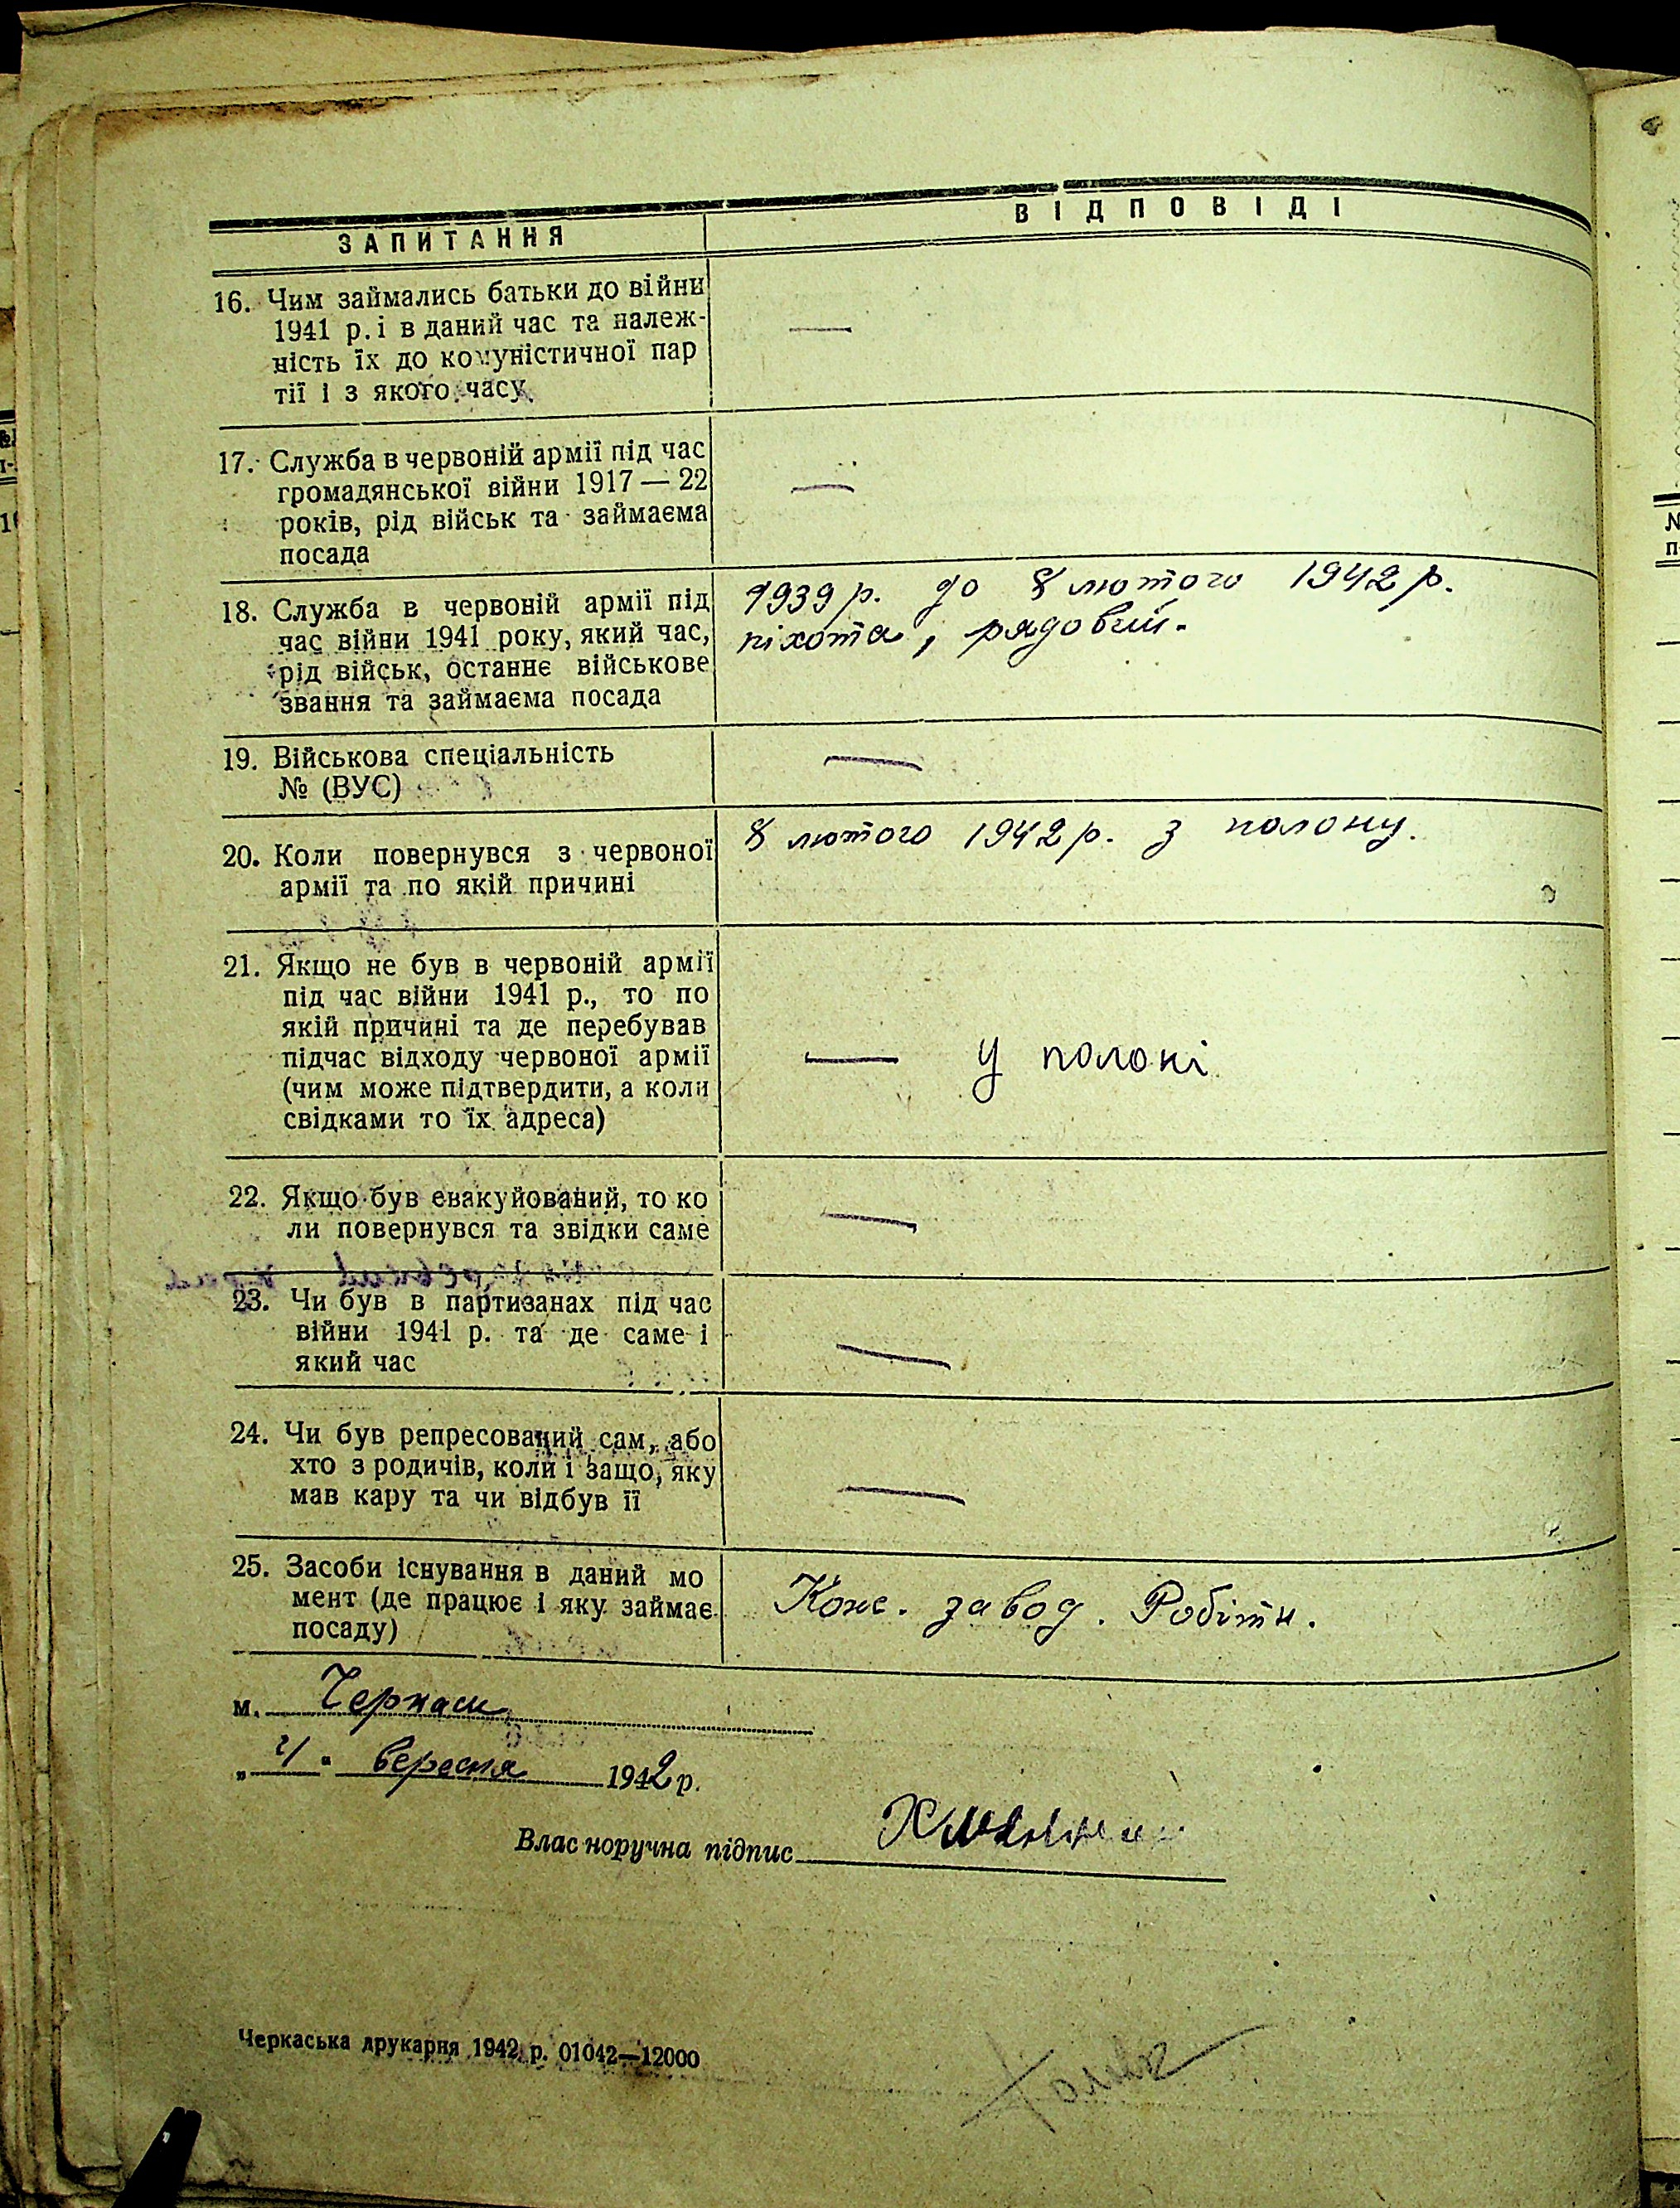 ЗАПИТАННЯ
ВІДПОВІДІ
16. Чим займались батьки до війни
1941 р. і в даний час та належ-
ність їх до комуністичної пар
тії і з якого часу
—
17. Служба в червоній армії під час
громадянської війни 1917 — 22
років, рід військ та займаєма
посада
—
18. Служба в червоній армії під
час війни 1941 року, який час,
рід військ, останнє військове
звання та займаєма посада
1939 р. до 8 лютого 1942 р.
піхота, рядовий.
19. Військова спеціальність
№ (ВУС)
—
20. Коли повернувся з червоної
армії та по якій причині
8 лютого 1942 р. з полону.
21. Якщо не був в червоній армії
під час війни 1941 р., то по
якій причині та де перебував
підчас відходу червоної армії
(чим може підтвердити, а коли
свідками то їх адреса)
— у полоні
22. Якщо був евакуйований, то ко
ли повернувся та звідки саме
—
23. Чи був в партизанах під час
війни 1941 р. та де саме і
який час
—
24. Чи був репресований сам, або
хто з родичів, коли і защо, яку
мав кару та чи відбув її
—
25. Засоби існування в даний мо
мент (де працює і яку займає
посаду)
Конс. завод. Робітн.
м. Черкаси
„ " вересня 1942 р.
Власноручна підпис
Черкаська друкарня 1942 р. 01042—12000